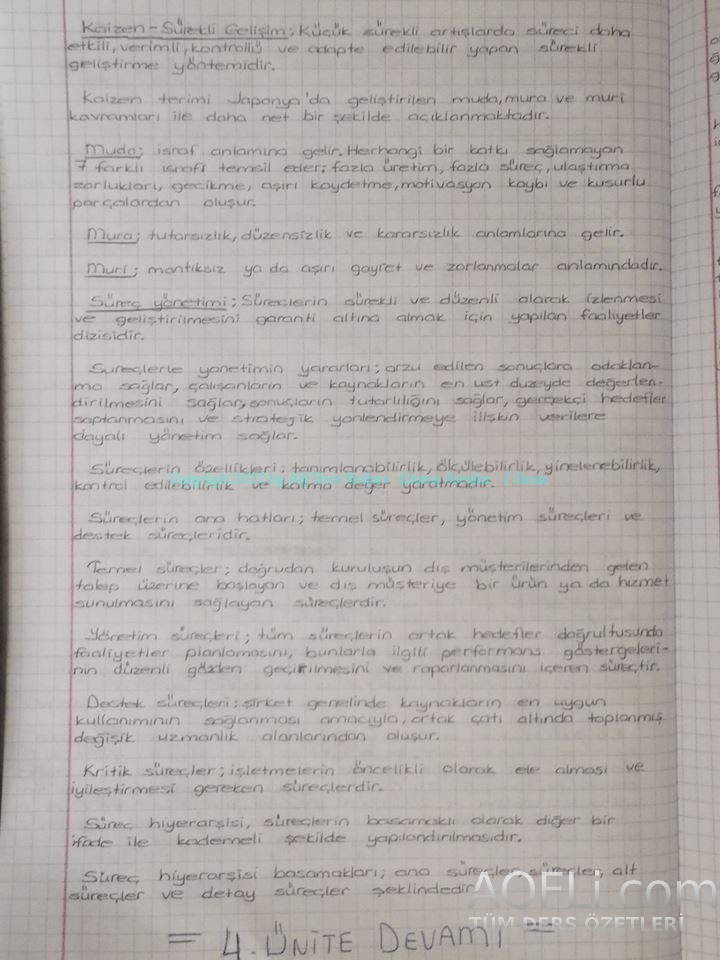 Kaizen - Sürekli Gelişim; Küçük sürekli artışlarda süreci daha
etkili, verimli, kontrollü ve adapte edilebilir yapan sürekli
geliştirme yöntemidir.
Kaizen terimi Japonya'da geliştirilen muda, mura ve muri
kavramları ile daha net bir şekilde açıklanmaktadır.
Muda; israf anlamına gelir. Herhangi bir katkı sağlamayan
7 farklı israfı temsil eder; fazla üretim, fazla süreç, ulaştırma
zorlukları, gecikme, aşırı kaydetme, motivasyon kaybı ve kusurlu
parçalardan oluşur.
Mura; tutarsızlık, düzensizlik ve kararsızlık anlamlarına gelir.
Muri; mantıksız ya da aşırı gayret ve zorlanmalar anlamındadır.
Süreç yönetimi; Süreçlerin sürekli ve düzenli olarak izlenmesi
ve geliştirilmesini garanti altına almak için yapılan faaliyetler
dizisidir.
Süreçlerle yönetimin yararları; arzu edilen sonuçlara odaklan-
ma sağlar, çalışanların ve kaynakların en üst düzeyde değerlen-
dirilmesini sağlar, sonuçların tutarlılığını sağlar, gerçekçi hedefler
saptanmasını ve stratejik yönlendirmeye ilişkin verilere
dayalı yönetim sağlar.
Süreçlerin özellikleri; tanımlanabilirlik, ölçülebilirlik, yinelenebilirlik,
kontrol edilebilirlik ve katma değer yaratmadır.
Süreçlerin ana hatları; temel süreçler, yönetim süreçleri ve
destek süreçleridir.
Temel süreçler; doğrudan kuruluşun dış müşterilerinden gelen
talep üzerine başlayan ve dış müşteriye bir ürün ya da hizmet
sunulmasını sağlayan süreçlerdir.
Yönetim süreçleri; tüm süreçlerin ortak hedefler doğrultusunda
faaliyetler planlamasını, bunlarla ilgili performans göstergeleri-
nin düzenli gözden geçirilmesini ve raporlanmasını içeren süreçtir.
Destek süreçleri; şirket genelinde kaynakların en uygun
kullanımının sağlanması amacıyla, ortak çatı altında toplanmış
değişik uzmanlık alanlarından oluşur.
Kritik süreçler; işletmelerin öncelikli olarak ele alması ve
iyileştirmesi gereken süreçlerdir.
Süreç hiyerarşisi, süreçlerin basamaklı olarak diğer bir
ifade ile kademeli şekilde yapılandırılmasıdır.
Süreç hiyerarşisi basamakları; ana süreçler, süreçler, alt
süreçler ve detay süreçler şeklindedir.
AOELi.com
TÜM DERS ÖZETLERİ
= 4. ÜNİTE DEVAMI =